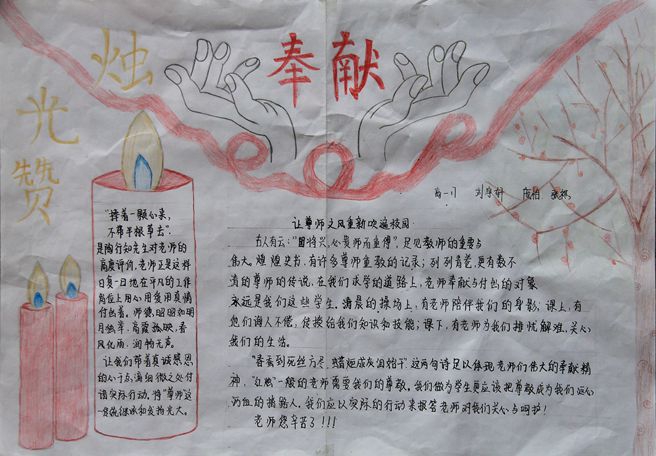 烛
光
赞
奉献
高一.1
让尊师之风重新吹遍校园
古人有云:“国将兴,心贵师而重傅”,足见教师的重要与
伟大。煌煌史书,有许多尊师重教的记录;列列青艺,更有数不
清的尊师的传说,在我们求学的道路上,老师奉献与付出的对象
永远是我们这些学生,清晨的操场上,有老师陪伴我们的身影;课上,有
他们诲人不倦,传授给我们知识和技能;课下,有老师为我们排忧解难,关心
我们的生活。
“春蚕到死丝方尽,蜡炬成灰泪始干”这两句诗足以体现老师们伟大的奉献精
神,“红烛”一般的老师需要我们的尊敬,我们做为学生更应该把尊敬成为我们
的 我们应以实际的行动来报答老师对我们关心与呵护!
老师您辛苦了!!!
“捧着一颗心来,
不带半根草去”.
是陶行知先生对老师的
高度评价,老师正是这样
日复一日地在平凡的工作
岗位上用心用爱用真情
付出着。师德,昭昭如明
月独举,高霞孤映,春
风化雨,润物无声。
让我们带着真诚感恩
的心于点滴细微之处付
诸实际行动,将“尊师”这
一传统继承和发扬光大。